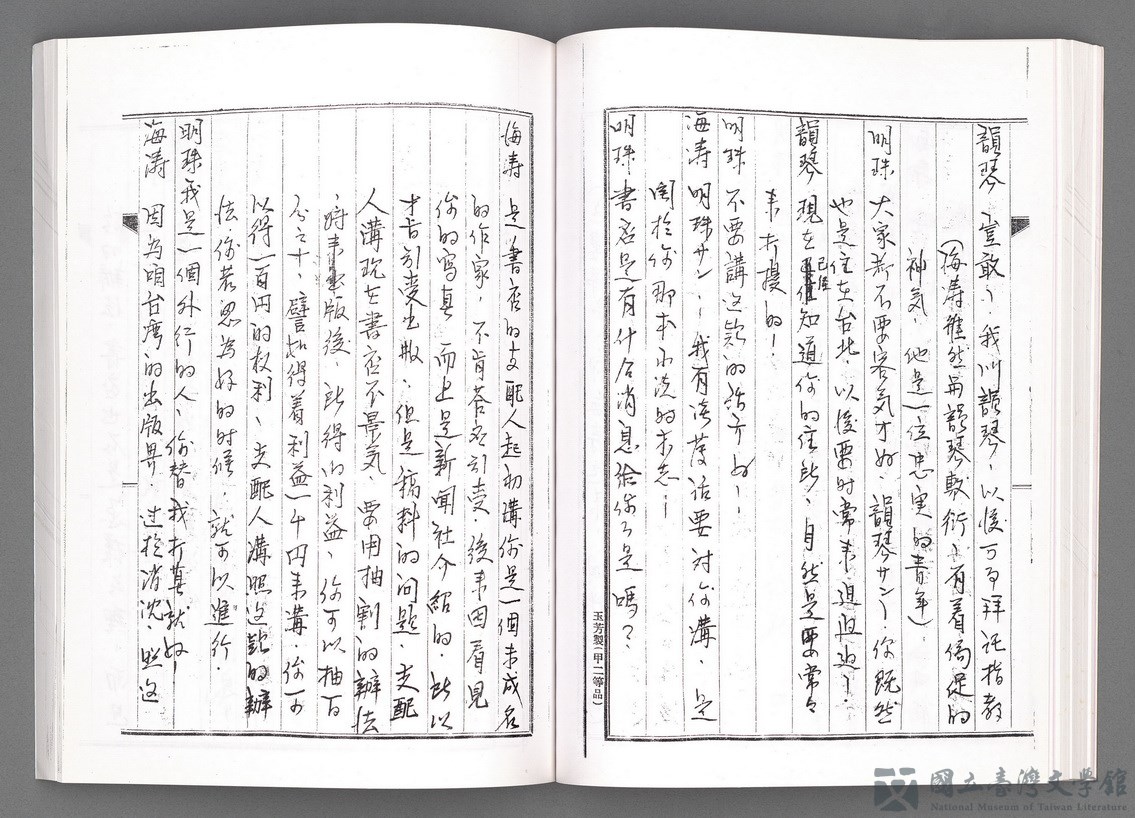 韻琴 豈敢〻我叫韻琴、以後万百拜託指教
(海濤雖然與韻琴敷衍〻有着侷促的
神気、他是一位忠実的青年)
明珠 大家都不要客気才好、韻琴サン！你既然
也是住在台北、以後要时常来迫迌！
韻琴 現在已経知道你的住所、自然是要常々
来打擾的！
明珠 不要講这款的話才好！
海濤 明珠サン！我有淡薄话要对你講、是
関於你那本小说的末志！
明珠 書店是有什么消息给你了是嗎？
海濤 是書店的支配人起初講你是一個未成名
的作家、不肯答应引受、後来因看見
你的寫真 而上是新聞社介紹的、所以
才肯引受出版、但是稿料的问題、支配
人講现在書店不景気、要用抽割的辦法
、将来出版後、所得的利益、你可以抽百
分之十、譬如得着利益一千円来講、你可
以得一百円的权利、支配人講照这款的辦
法、你若思为好的时候、就可以進行．
明珠 我是一個外行的人、你替我打算就好！
海濤 因为咱台湾的出版界、过於消沈、照这
玉芳製(甲二等品)
國立臺灣文學館
National Museum of Taiwan Literature